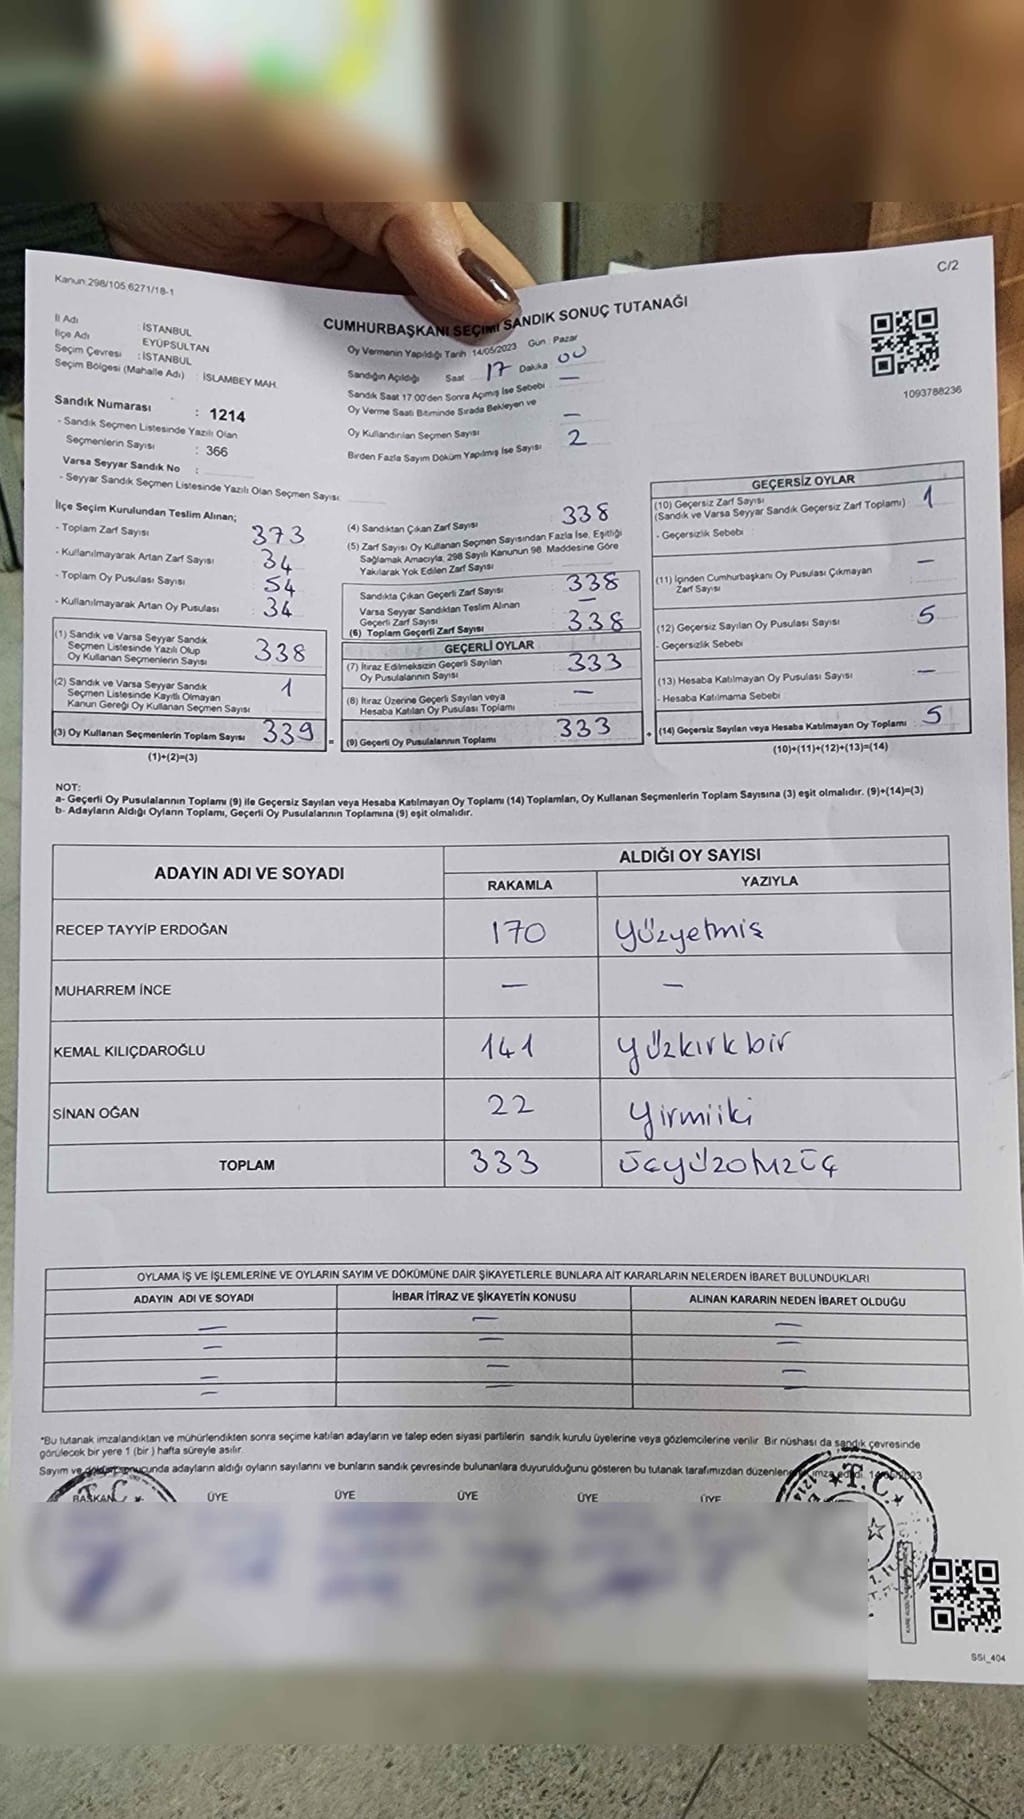 Kanun:298/105,6271/18-1
C/2
CUMHURBAŞKANI SEÇİMİ SANDIK SONUÇ TUTANAĞI
İl Adı : İSTANBUL
İlçe Adı : EYÜPSULTAN
Seçim Çevresi : İSTANBUL
Seçim Bölgesi (Mahalle Adı) : İSLAMBEY MAH.
Oy Vermenin Yapıldığı Tarih : 14/05/2023 Gün : Pazar
Sandığın Açıldığı Saat 17 Dakika 00
Sandık Saat 17:00'den Sonra Açımış İse Sebebi —
Oy Verme Saati Bitiminde Sırada Bekleyen ve
Oy Kullandırılan Seçmen Sayısı —
Birden Fazla Sayım Döküm Yapılmış İse Sayısı 2
1093788236
Sandık Numarası : 1214
- Sandık Seçmen Listesinde Yazılı Olan
Seçmenlerin Sayısı : 366
Varsa Seyyar Sandık No :
- Seyyar Sandık Seçmen Listesinde Yazılı Olan Seçmen Sayısı:
İlçe Seçim Kurulundan Teslim Alınan;
- Toplam Zarf Sayısı : 373
- Kullanılmayarak Artan Zarf Sayısı : 34
- Toplam Oy Pusulası Sayısı : 54
- Kullanılmayarak Artan Oy Pusulası : 34
(1) Sandık ve Varsa Seyyar Sandık
Seçmen Listesinde Yazılı Olup
Oy Kullanan Seçmenlerin Sayısı 338
(2) Sandık ve Varsa Seyyar Sandık
Seçmen Listesinde Kayıtlı Olmayan
Kanun Gereği Oy Kullanan Seçmen Sayısı 1
(3) Oy Kullanan Seçmenlerin Toplam Sayısı 339
(1)+(2)=(3)
(4) Sandıktan Çıkan Zarf Sayısı 338
(5) Zarf Sayısı Oy Kullanan Seçmen Sayısından Fazla İse, Eşitliği
Sağlamak Amacıyla, 298 Sayılı Kanunun 98. Maddesine Göre
Yakılarak Yok Edilen Zarf Sayısı
Sandıkta Çıkan Geçerli Zarf Sayısı 338
Varsa Seyyar Sandıktan Teslim Alınan
Geçerli Zarf Sayısı —
(6) Toplam Geçerli Zarf Sayısı 338
GEÇERLİ OYLAR
(7) İtiraz Edilmeksizin Geçerli Sayılan
Oy Pusulalarının Sayısı 333
(8) İtiraz Üzerine Geçerli Sayılan veya
Hesaba Katılan Oy Pusulası Toplamı —
= (9) Geçerli Oy Pusulalarının Toplamı 333
GEÇERSİZ OYLAR
(10) Geçersiz Zarf Sayısı
(Sandık ve Varsa Seyyar Sandık Geçersiz Zarf Toplamı) 1
- Geçersizlik Sebebi :
(11) İçinden Cumhurbaşkanı Oy Pusulası Çıkmayan
Zarf Sayısı —
(12) Geçersiz Sayılan Oy Pusulası Sayısı 5
- Geçersizlik Sebebi
(13) Hesaba Katılmayan Oy Pusulası Sayısı —
- Hesaba Katılmama Sebebi
+ (14) Geçersiz Sayılan veya Hesaba Katılmayan Oy Toplamı 5
(10)+(11)+(12)+(13)=(14)
NOT:
a- Geçerli Oy Pusulalarının Toplamı (9) ile Geçersiz Sayılan veya Hesaba Katılmayan Oy Toplamı (14) Toplamları, Oy Kullanan Seçmenlerin Toplam Sayısına (3) eşit olmalıdır. (9)+(14)=(3)
b- Adayların Aldığı Oyların Toplamı, Geçerli Oy Pusulalarının Toplamına (9) eşit olmalıdır.
ADAYIN ADI VE SOYADI ALDIĞI OY SAYISI
RAKAMLA YAZIYLA
RECEP TAYYİP ERDOĞAN 170 Yüzyetmiş
MUHARREM İNCE — —
KEMAL KILIÇDAROĞLU 141 yüzkırkbir
SİNAN OĞAN 22 yirmiiki
TOPLAM 333 üçyüzotuzüç
OYLAMA İŞ VE İŞLEMLERİNE VE OYLARIN SAYIM VE DÖKÜMÜNE DAİR ŞİKAYETLERLE BUNLARA AİT KARARLARIN NELERDEN İBARET BULUNDUKLARI
ADAYIN ADI VE SOYADI İHBAR İTİRAZ VE ŞİKAYETİN KONUSU ALINAN KARARIN NEDEN İBARET OLDUĞU
— — —
— — —
— — —
— — —
*Bu tutanak imzalandıktan ve mühürlendikten sonra seçime katılan adayların ve talep eden siyasi partilerin sandık kurulu üyelerine veya gözlemcilerine verilir. Bir nüshası da sandık çevresinde
görülecek bir yere 1 (bir ) hafta süreyle asılır.
Sayım ve döküm sonucunda adayların aldığı oyların sayılarını ve bunların sandık çevresinde bulunanlara duyurulduğunu gösteren bu tutanak tarafımızdan düzenlenerek imza edildi. 14/05/2023
BAŞKAN ÜYE ÜYE ÜYE ÜYE ÜYE
T.C. T.C.
1214
SSI_404